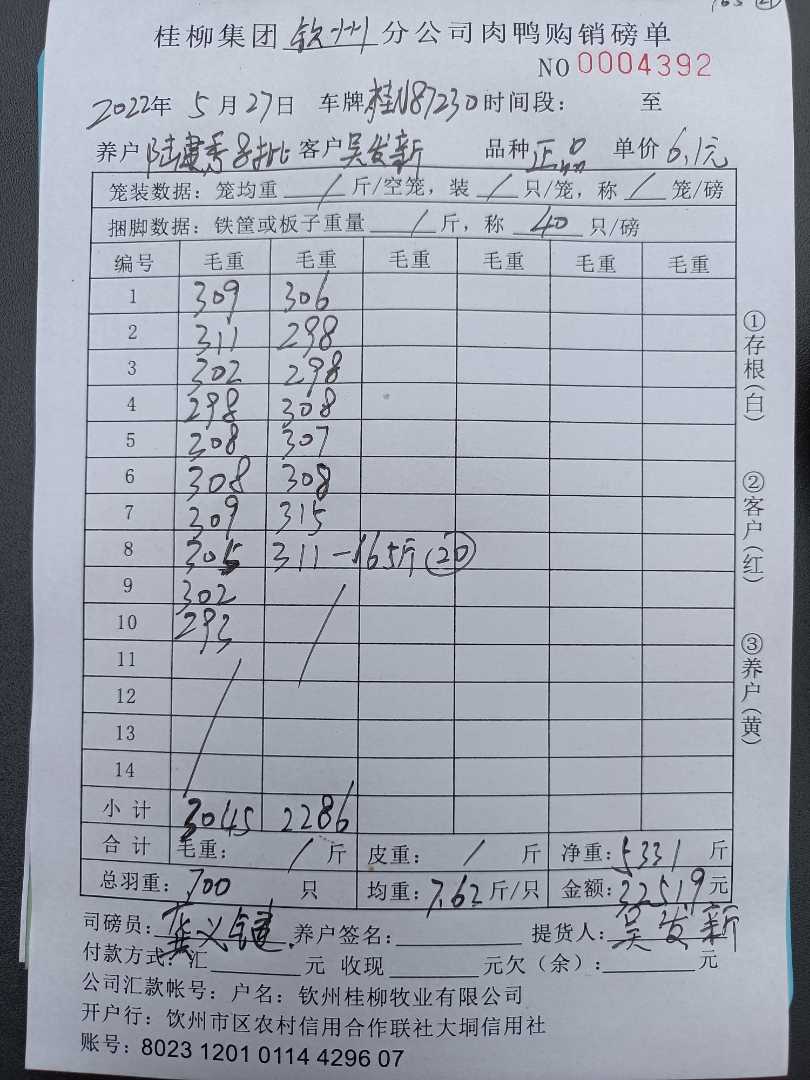 桂柳集团钦州分公司肉鸭购销磅单
NO 0004392
2022年 5月27日 车牌桂N87230时间段： 至
养户 陆建秀 客户吴发新 品种正品 单价6.1元
笼装数据：笼均重 / 斤/空笼，装 / 只/笼，称 / 笼/磅
捆脚数据：铁筐或板子重量 / 斤，称 40 只/磅
编号 毛重 毛重 毛重 毛重 毛重 毛重
1 309 306
2 311 298
3 302 298
4 298 308
5 308 307
6 308 308
7 309 315
8 305 311-165斤(20)
9 302
10 293
11
12
13
14
小计 3045 2286
合计 毛重： / 斤 皮重： / 斤 净重：5331 斤
总羽重：700 只 均重：7.62斤/只 金额：32519元
司磅员： 养户签名： 提货人：吴发新
付款方式：汇 元 收现 元欠（余）： 元
公司汇款帐号：户名：钦州桂柳牧业有限公司
开户行：钦州市区农村信用合作联社大垌信用社
账号：8023 1201 0114 4296 07
①存根(白) ②客户(红) ③养户(黄)